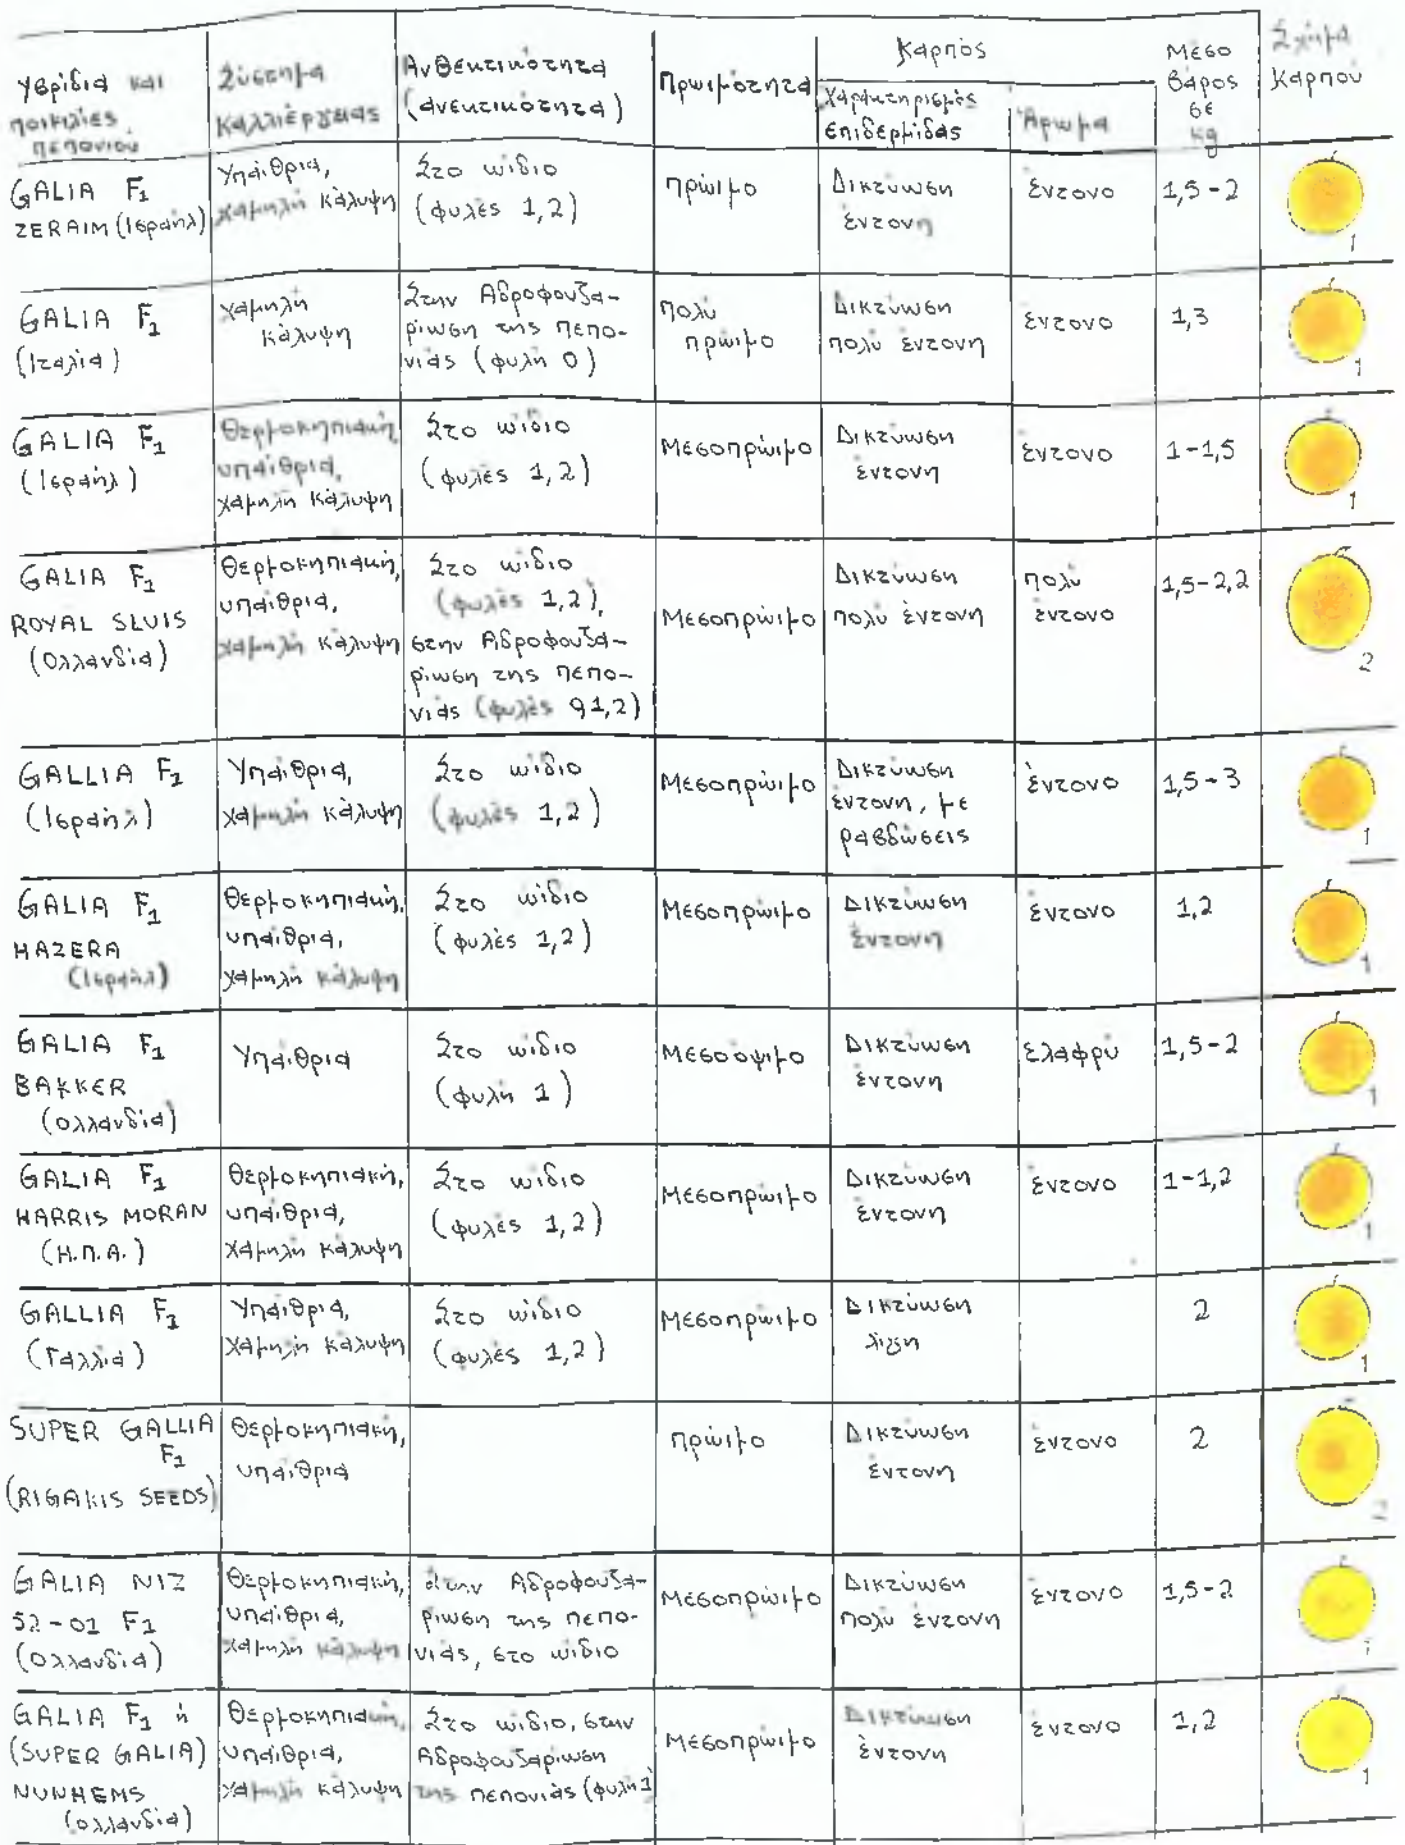 Υβρίδια και
ποικιλίες
πεπονιού
Σύστημα
Καλλιέργειας
Ανθεκτικότητα
(ανεκτικότητα)
Πρωιμότητα
Καρπός
Χαρακτηρισμός
επιδερμίδας
Άρωμα
Μέσο
βάρος
σε
kg
Σχήμα
Καρπού
GALIA F1
ZERAIM (Ισραήλ)
Υπαίθρια,
χαμηλή κάλυψη
Στο ωίδιο
(φυλές 1,2)
πρώιμο
Δικτύωση
έντονη
έντονο
1,5-2
1
GALIA F1
(Ιταλία)
χαμηλή
κάλυψη
Στην Αδροφουζα-
ρίωση της πεπο-
νιάς (φυλή 0)
πολύ
πρώιμο
Δικτύωση
πολύ έντονη
έντονο
1,3
1
GALIA F1
(Ισραήλ)
Θερμοκηπιακή,
υπαίθρια,
χαμηλή κάλυψη
Στο ωίδιο
(φυλές 1,2)
Μεσοπρώιμο
Δικτύωση
έντονη
έντονο
1-1,5
1
GALIA F1
ROYAL SLUIS
(Ολλανδία)
Θερμοκηπιακή,
υπαίθρια,
χαμηλή κάλυψη
Στο ωίδιο
(φυλές 1,2),
στην Αδροφουζα-
ρίωση της πεπο-
νιάς (φυλές 0,1,2)
Μεσοπρώιμο
Δικτύωση
πολύ έντονη
πολύ
έντονο
1,5-2,2
2
GALLIA F1
(Ισραήλ)
Υπαίθρια,
χαμηλή κάλυψη
Στο ωίδιο
(φυλές 1,2)
Μεσοπρώιμο
Δικτύωση
έντονη, με
ραβδώσεις
έντονο
1,5-3
1
GALIA F1
HAZERA
(Ισραήλ)
Θερμοκηπιακή,
υπαίθρια,
χαμηλή κάλυψη
Στο ωίδιο
(φυλές 1,2)
Μεσοπρώιμο
Δικτύωση
έντονη
έντονο
1,2
1
GALIA F1
BAKKER
(ολλανδία)
Υπαίθρια
Στο ωίδιο
(φυλή 1)
Μεσοόψιμο
Δικτύωση
έντονη
ελαφρύ
1,5-2
1
GALIA F1
HARRIS MORAN
(Η.Π.Α.)
Θερμοκηπιακή,
υπαίθρια,
χαμηλή κάλυψη
Στο ωίδιο
(φυλές 1,2)
Μεσοπρώιμο
Δικτύωση
έντονη
έντονο
1-1,2
1
GALLIA F1
(Γαλλία)
Υπαίθρια,
χαμηλή κάλυψη
Στο ωίδιο
(φυλές 1,2)
Μεσοπρώιμο
Δικτύωση
λίγη
2
1
SUPER GALLIA
F1
(RIGAKIS SEEDS)
Θερμοκηπιακή,
υπαίθρια
πρώιμο
Δικτύωση
έντονη
έντονο
2
2
GALIA NIZ
52-01 F1
(ολλανδία)
Θερμοκηπιακή,
υπαίθρια,
χαμηλή κάλυψη
στην Αδροφουζα-
ρίωση της πεπο-
νιάς, στο ωίδιο
Μεσοπρώιμο
Δικτύωση
πολύ έντονη
έντονο
1,5-2
1
GALIA F1 ή
(SUPER GALIA)
NUNHEMS
(ολλανδία)
Θερμοκηπιακή,
υπαίθρια,
χαμηλή κάλυψη
Στο ωίδιο, στην
Αδροφουζαρίωση
της πεπονιάς (φυλή 1)
Μεσοπρώιμο
Δικτύωση
έντονη
έντονο
1,2
1